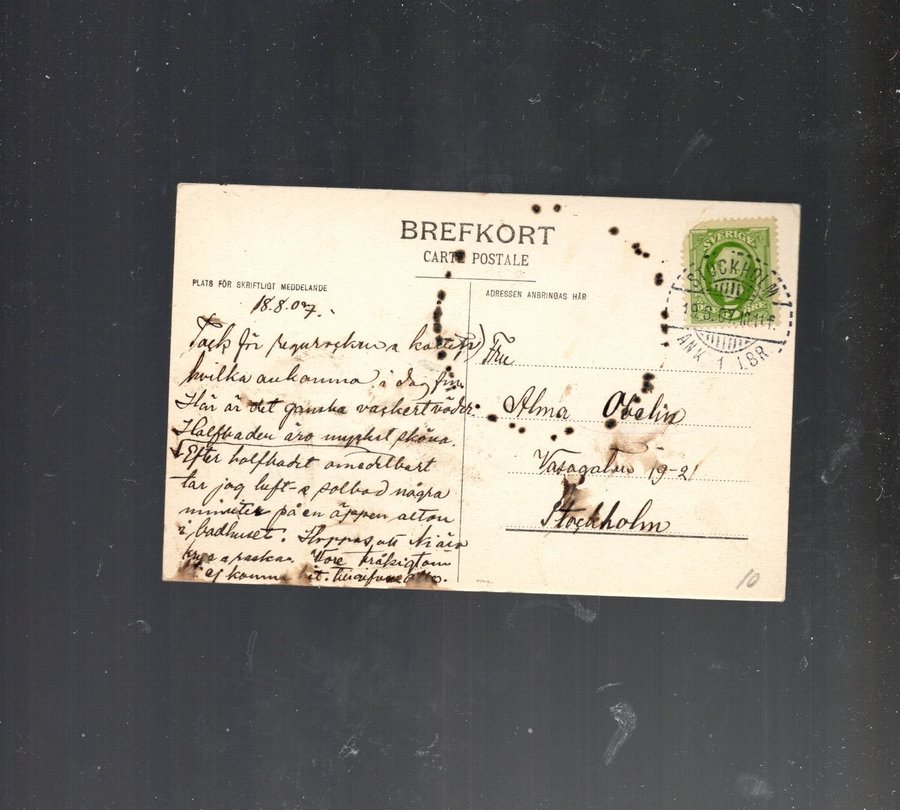 BREFKORT
CARTE POSTALE
PLATS FÖR SKRIFTLIGT MEDDELANDE
ADRESSEN ANBRINGAS HÄR
SVERIGE
STOCKHOLM 1
ANK 1 LBR
18.8.07.
Tack för
hvilka ankommo i dag fm.
Här är det ganska vackert väder.
Halfbaden äro mycket sköna.
Efter halfbadet omedelbart
tar jag luft- o solbad några
minuter på en öppen altan
i badhuset. Hoppas att Ni äro
raska. Vore tråkigt om
ej komm hit.
Fru
Alma Obelin
Vasagatan 19-21
Stockholm
10